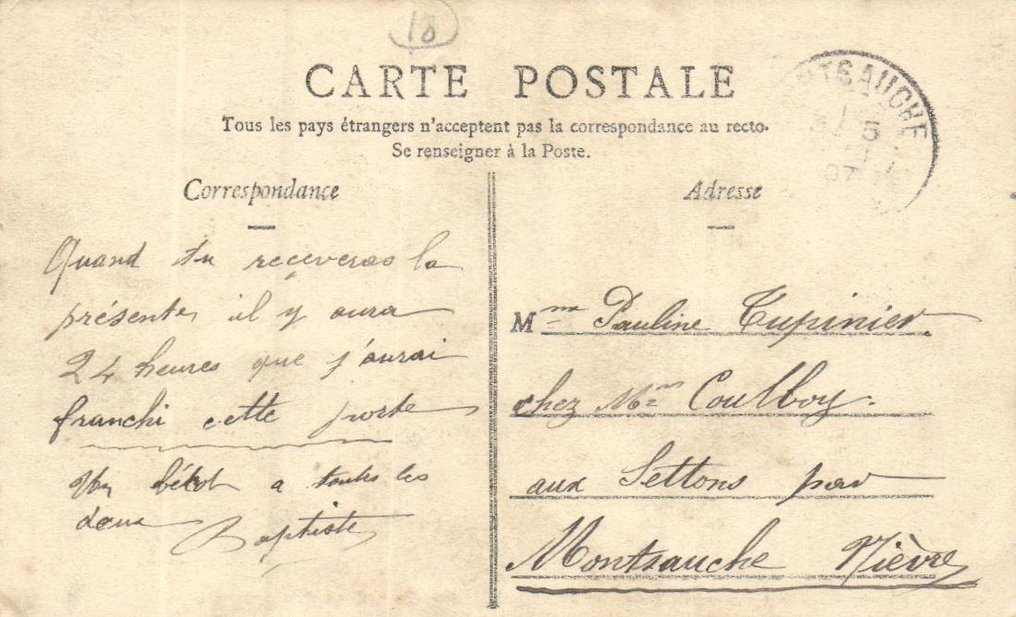 18
CARTE POSTALE
Tous les pays étrangers n'acceptent pas la correspondance au recto.
Se renseigner à la Poste.
Correspondance
Quand tu receveras la
présente il y aura
24 heures que j'aurai
franchi cette porte
a toutes les
deux Baptiste
Adresse
Mme Pauline Tupinier.
chez Mme Coulboy.
aux Settons par
Montsauche Nièvre
TSAUCHE
5
07